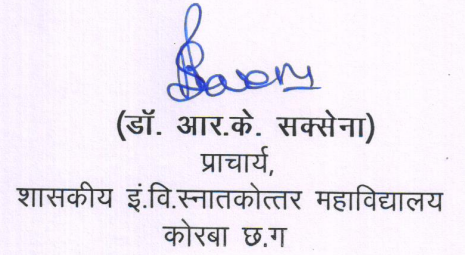 (डॉ. आर.के. सक्सेना)
प्राचार्य,
शासकीय इं.वि.स्नातकोत्तर महाविद्यालय
कोरबा छ.ग